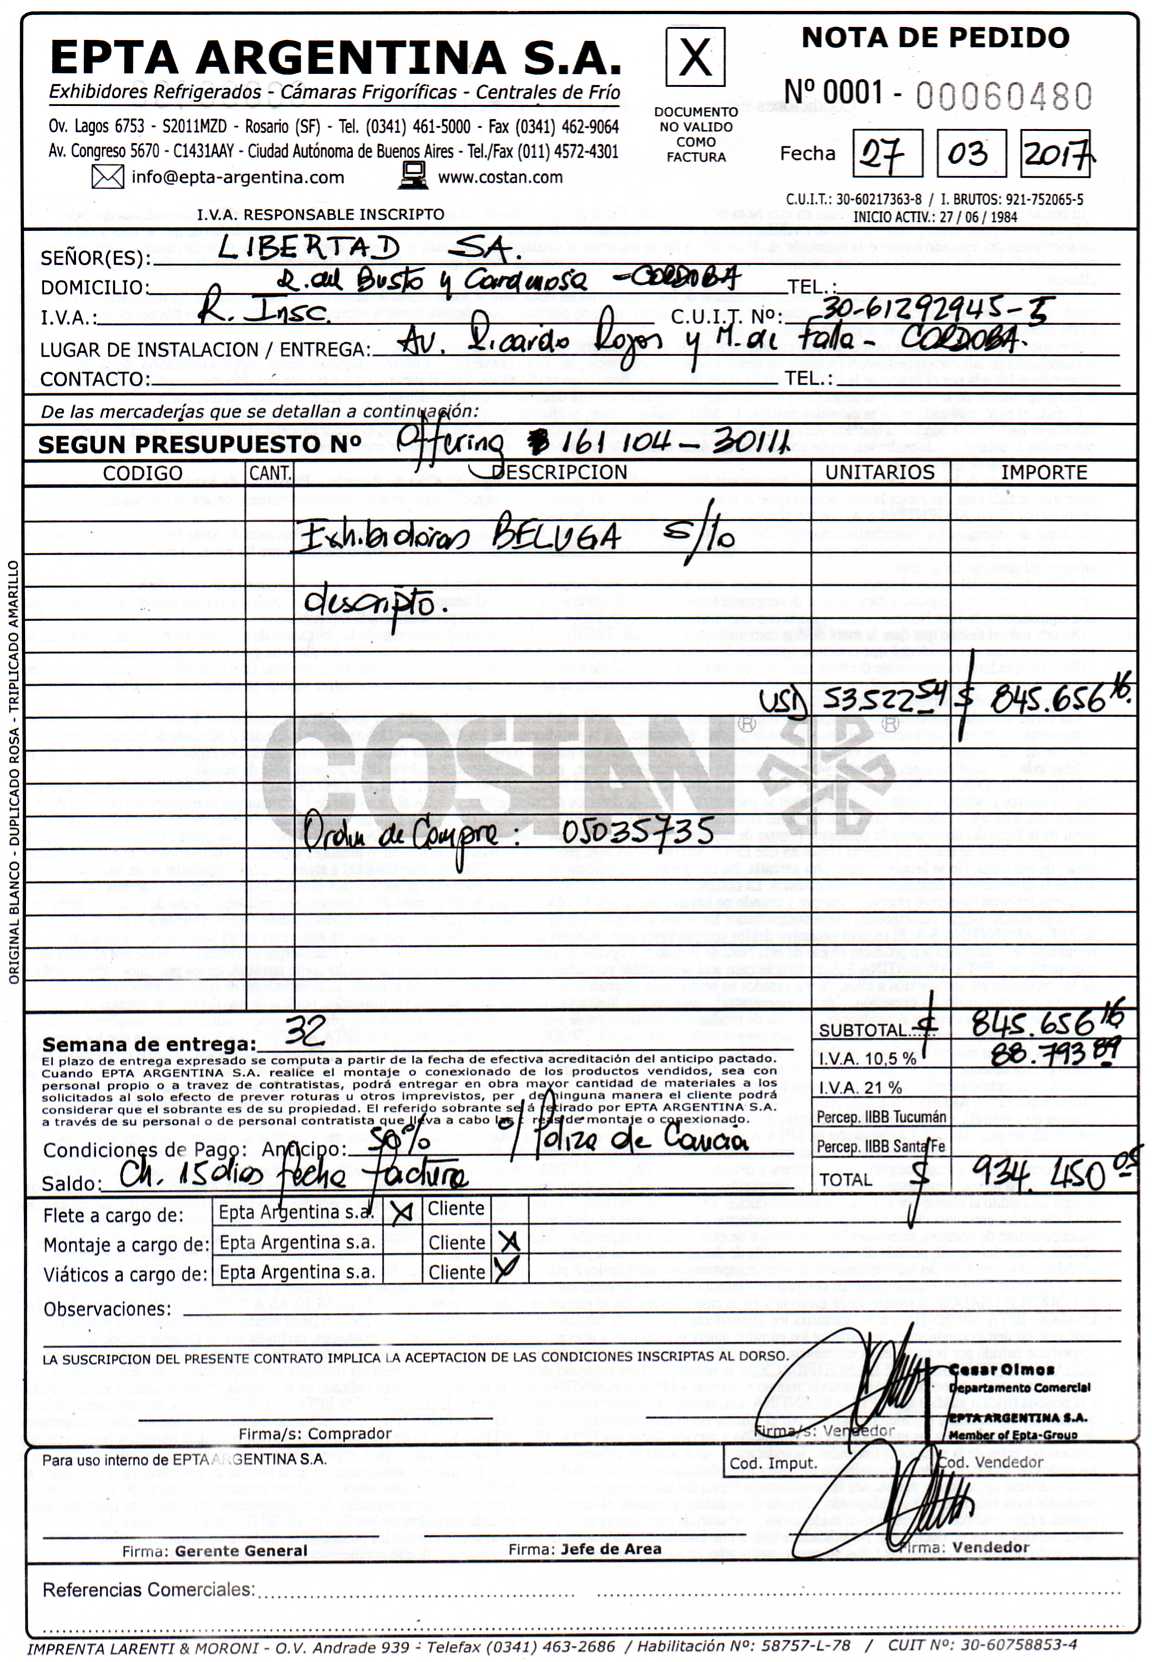 EPTA ARGENTINA S.A.
Exhibidores Refrigerados - Cámaras Frigoríficas - Centrales de Frío
Ov. Lagos 6753 - S2011MZD - Rosario (SF) - Tel. (0341) 461-5000 - Fax (0341) 462-9064
Av. Congreso 5670 - C1431AAY - Ciudad Autónoma de Buenos Aires - Tel./Fax (011) 4572-4301
info@epta-argentina.com www.costan.com
I.V.A. RESPONSABLE INSCRIPTO
X
DOCUMENTO
NO VALIDO
COMO
FACTURA
NOTA DE PEDIDO
Nº 0001 - 00060480
Fecha 27 03 2017
C.U.I.T.: 30-60217363-8 / I. BRUTOS: 921-752065-5
INICIO ACTIV.: 27 / 06 / 1984
SEÑOR(ES): LIBERTAD SA.
DOMICILIO: R. del Busto y Cardeñosa - CORDOBA TEL.:
I.V.A.: R. Insc. C.U.I.T. Nº: 30-61292945-5
LUGAR DE INSTALACION / ENTREGA: Av. Ricardo Rojas y M. de Falla - CORDOBA.
CONTACTO: TEL.:
De las mercaderías que se detallan a continuación:
SEGUN PRESUPUESTO Nº Offering 161 104 - 30111.
CODIGO CANT. DESCRIPCION UNITARIOS IMPORTE
Exhibidoras BELUGA s/lo
descripto.
USD 53.522 54 $ 845.656 16.
COSTAN ® ®
Orden de Compra: 05035735
ORIGINAL BLANCO - DUPLICADO ROSA - TRIPLICADO AMARILLO
Semana de entrega: 32
El plazo de entrega expresado se computa a partir de la fecha de efectiva acreditación del anticipo pactado.
Cuando EPTA ARGENTINA S.A. realice el montaje o conexionado de los productos vendidos, sea con
personal propio o a travez de contratistas, podrá entregar en obra mayor cantidad de materiales a los
solicitados al solo efecto de prever roturas u otros imprevistos, per de ninguna manera el cliente podrá
considerar que el sobrante es de su propiedad. El referido sobrante se á retirado por EPTA ARGENTINA S.A.
a través de su personal o de personal contratista que lleva a cabo las t reas de montaje o conexionado.
Condiciones de Pago: Anticipo: 50% c/ Poliza de Caucion
Saldo: Ch. 15 dias fecha factura
SUBTOTAL...... $ 845.656 16
I.V.A. 10,5 % 88.793 89
I.V.A. 21 %
Percep. IIBB Tucumán
Percep. IIBB Santa Fe
TOTAL $ 934.450 05
Flete a cargo de: Epta Argentina s.a. X Cliente
Montaje a cargo de: Epta Argentina s.a. Cliente X
Viáticos a cargo de: Epta Argentina s.a. Cliente X
Observaciones:
LA SUSCRIPCION DEL PRESENTE CONTRATO IMPLICA LA ACEPTACION DE LAS CONDICIONES INSCRIPTAS AL DORSO.
Cesar Olmos
Departamento Comercial
EPTA ARGENTINA S.A.
Member of Epta-Group
Firma/s: Comprador Firma/s: Vendedor
Para uso interno de EPTA ARGENTINA S.A. Cod. Imput. Cod. Vendedor
Firma: Gerente General Firma: Jefe de Area Firma: Vendedor
Referencias Comerciales:
IMPRENTA LARENTI & MORONI - O.V. Andrade 939 - Telefax (0341) 463-2686 / Habilitación Nº: 58757-L-78 / CUIT Nº: 30-60758853-4